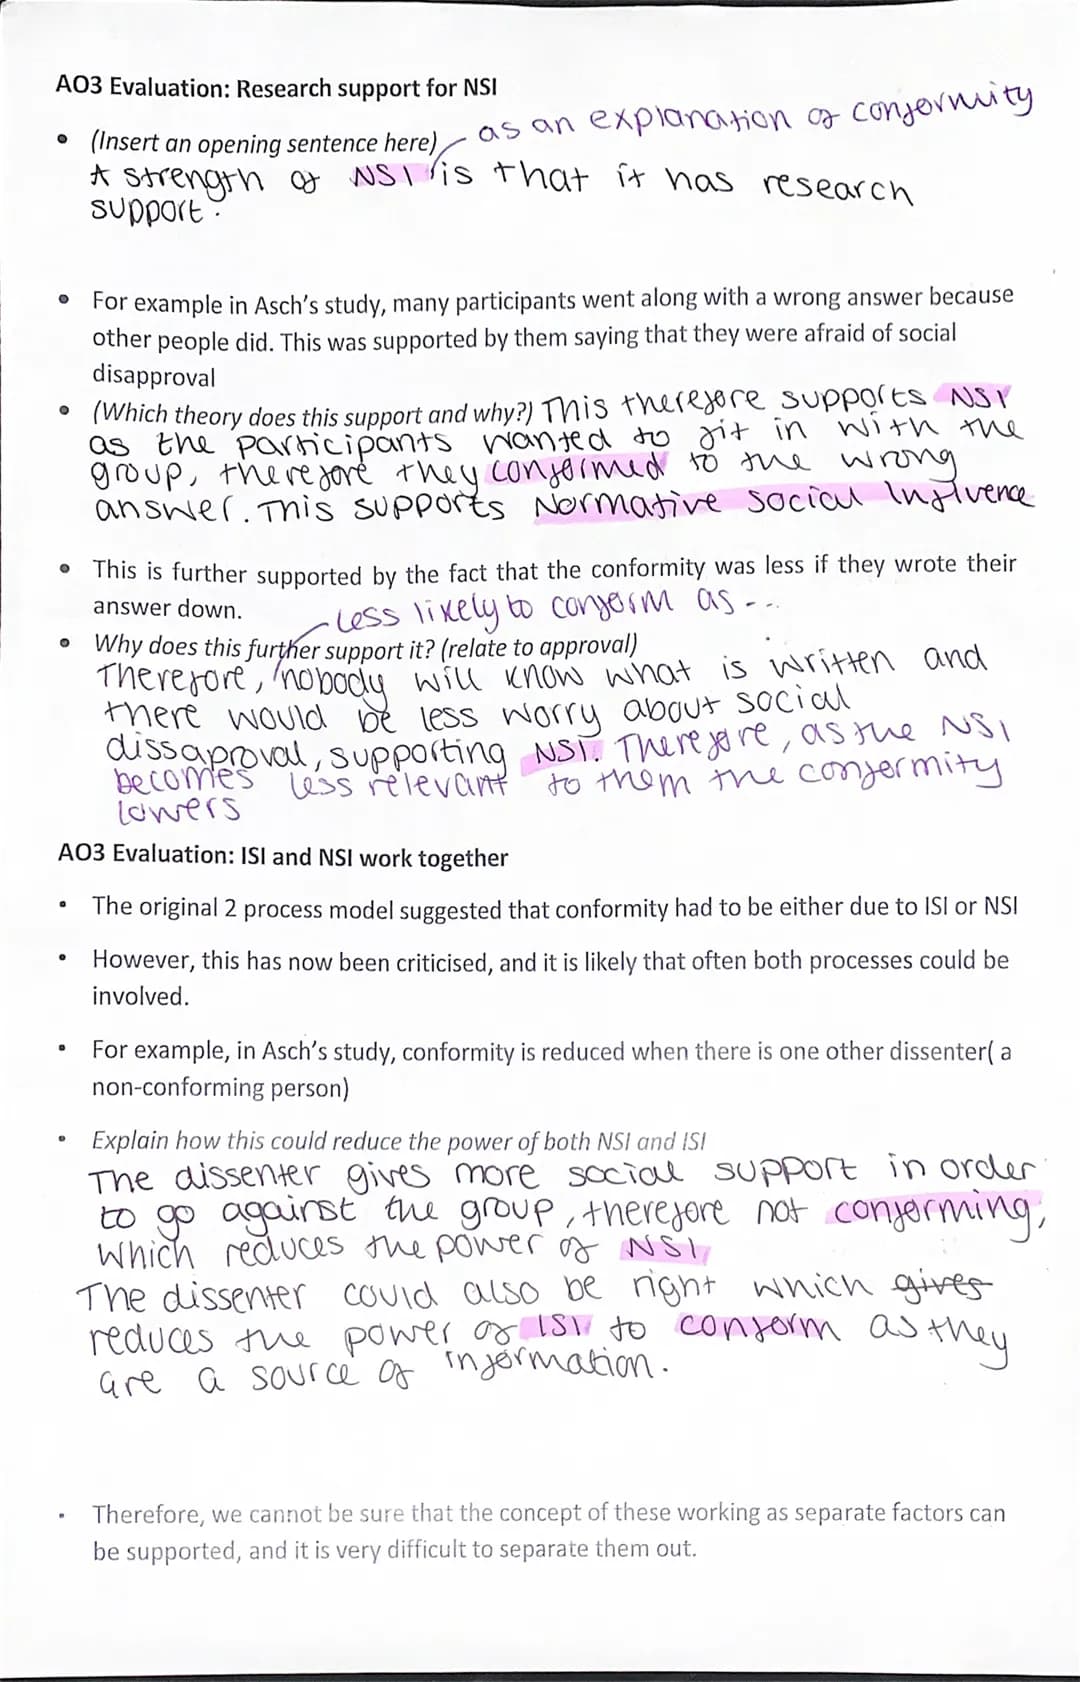 AO3 Evaluation: Research support for NSI
as an explanation of conformity
• (Insert an opening sentence here)
A strength of NSI is that it has research
support.
• For example in Asch's study, many participants went along with a wrong answer because
other people did. This was supported by them saying that they were afraid of social
disapproval
• (Which theory does this support and why?) This therefore supports NSI
as the participants wanted to fit in with the
group, therefore they conformed to the wrong
answer. This supports Normative social Influence
• This is further supported by the fact that the conformity was less if they wrote their
answer down.
less likely to conform as ---
• Why does this further support it? (relate to approval)
Therefore, nobody will know what is written and
there would be less worry about social
dissaproval, supporting NSI. Therefore, as the NSI
becomes less relevant to them the conformity
lowers
AO3 Evaluation: ISI and NSI work together
• The original 2 process model suggested that conformity had to be either due to ISI or NSI
• However, this has now been criticised, and it is likely that often both processes could be
involved.
• For example, in Asch's study, conformity is reduced when there is one other dissenter( a
non-conforming person)
• Explain how this could reduce the power of both NSI and ISI
The dissenter gives more social support in order
to go against the group, therefore not conforming,
which reduces the power of NSI,
The dissenter could also be right which gives
reduces the power of ISI to conform as they
are a source of information.
• Therefore, we cannot be sure that the concept of these working as separate factors can
be supported, and it is very difficult to separate them out.